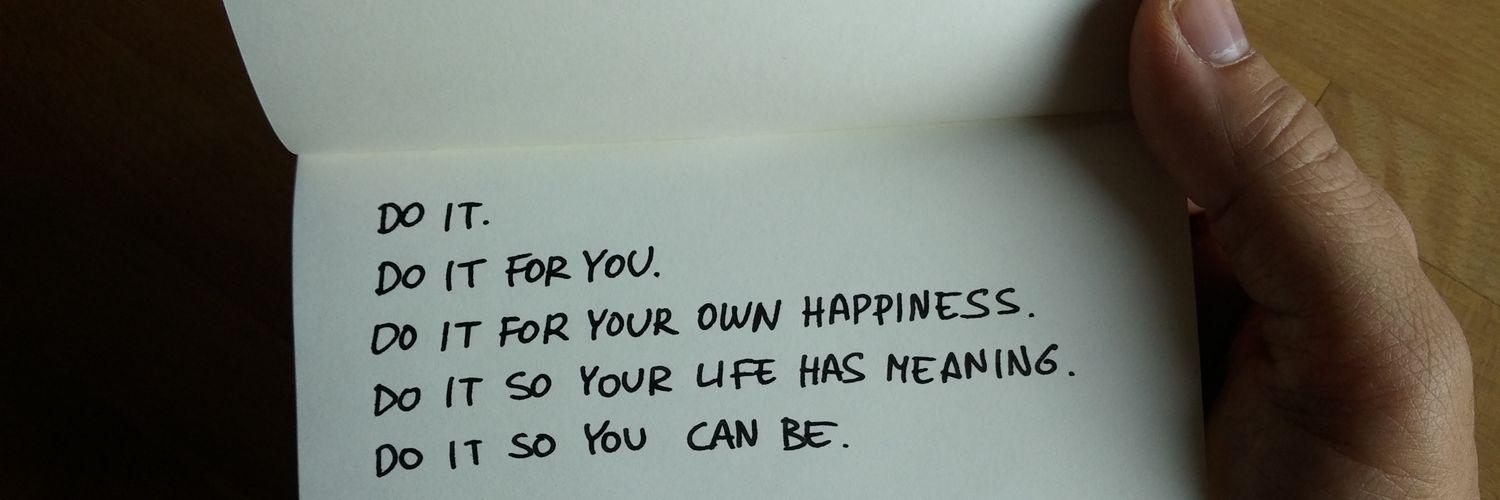 DO IT.
DO IT FOR YOU.
DO IT FOR YOUR OWN HAPPINESS.
DO IT SO YOUR LIFE HAS MEANING.
DO IT SO YOU CAN BE.